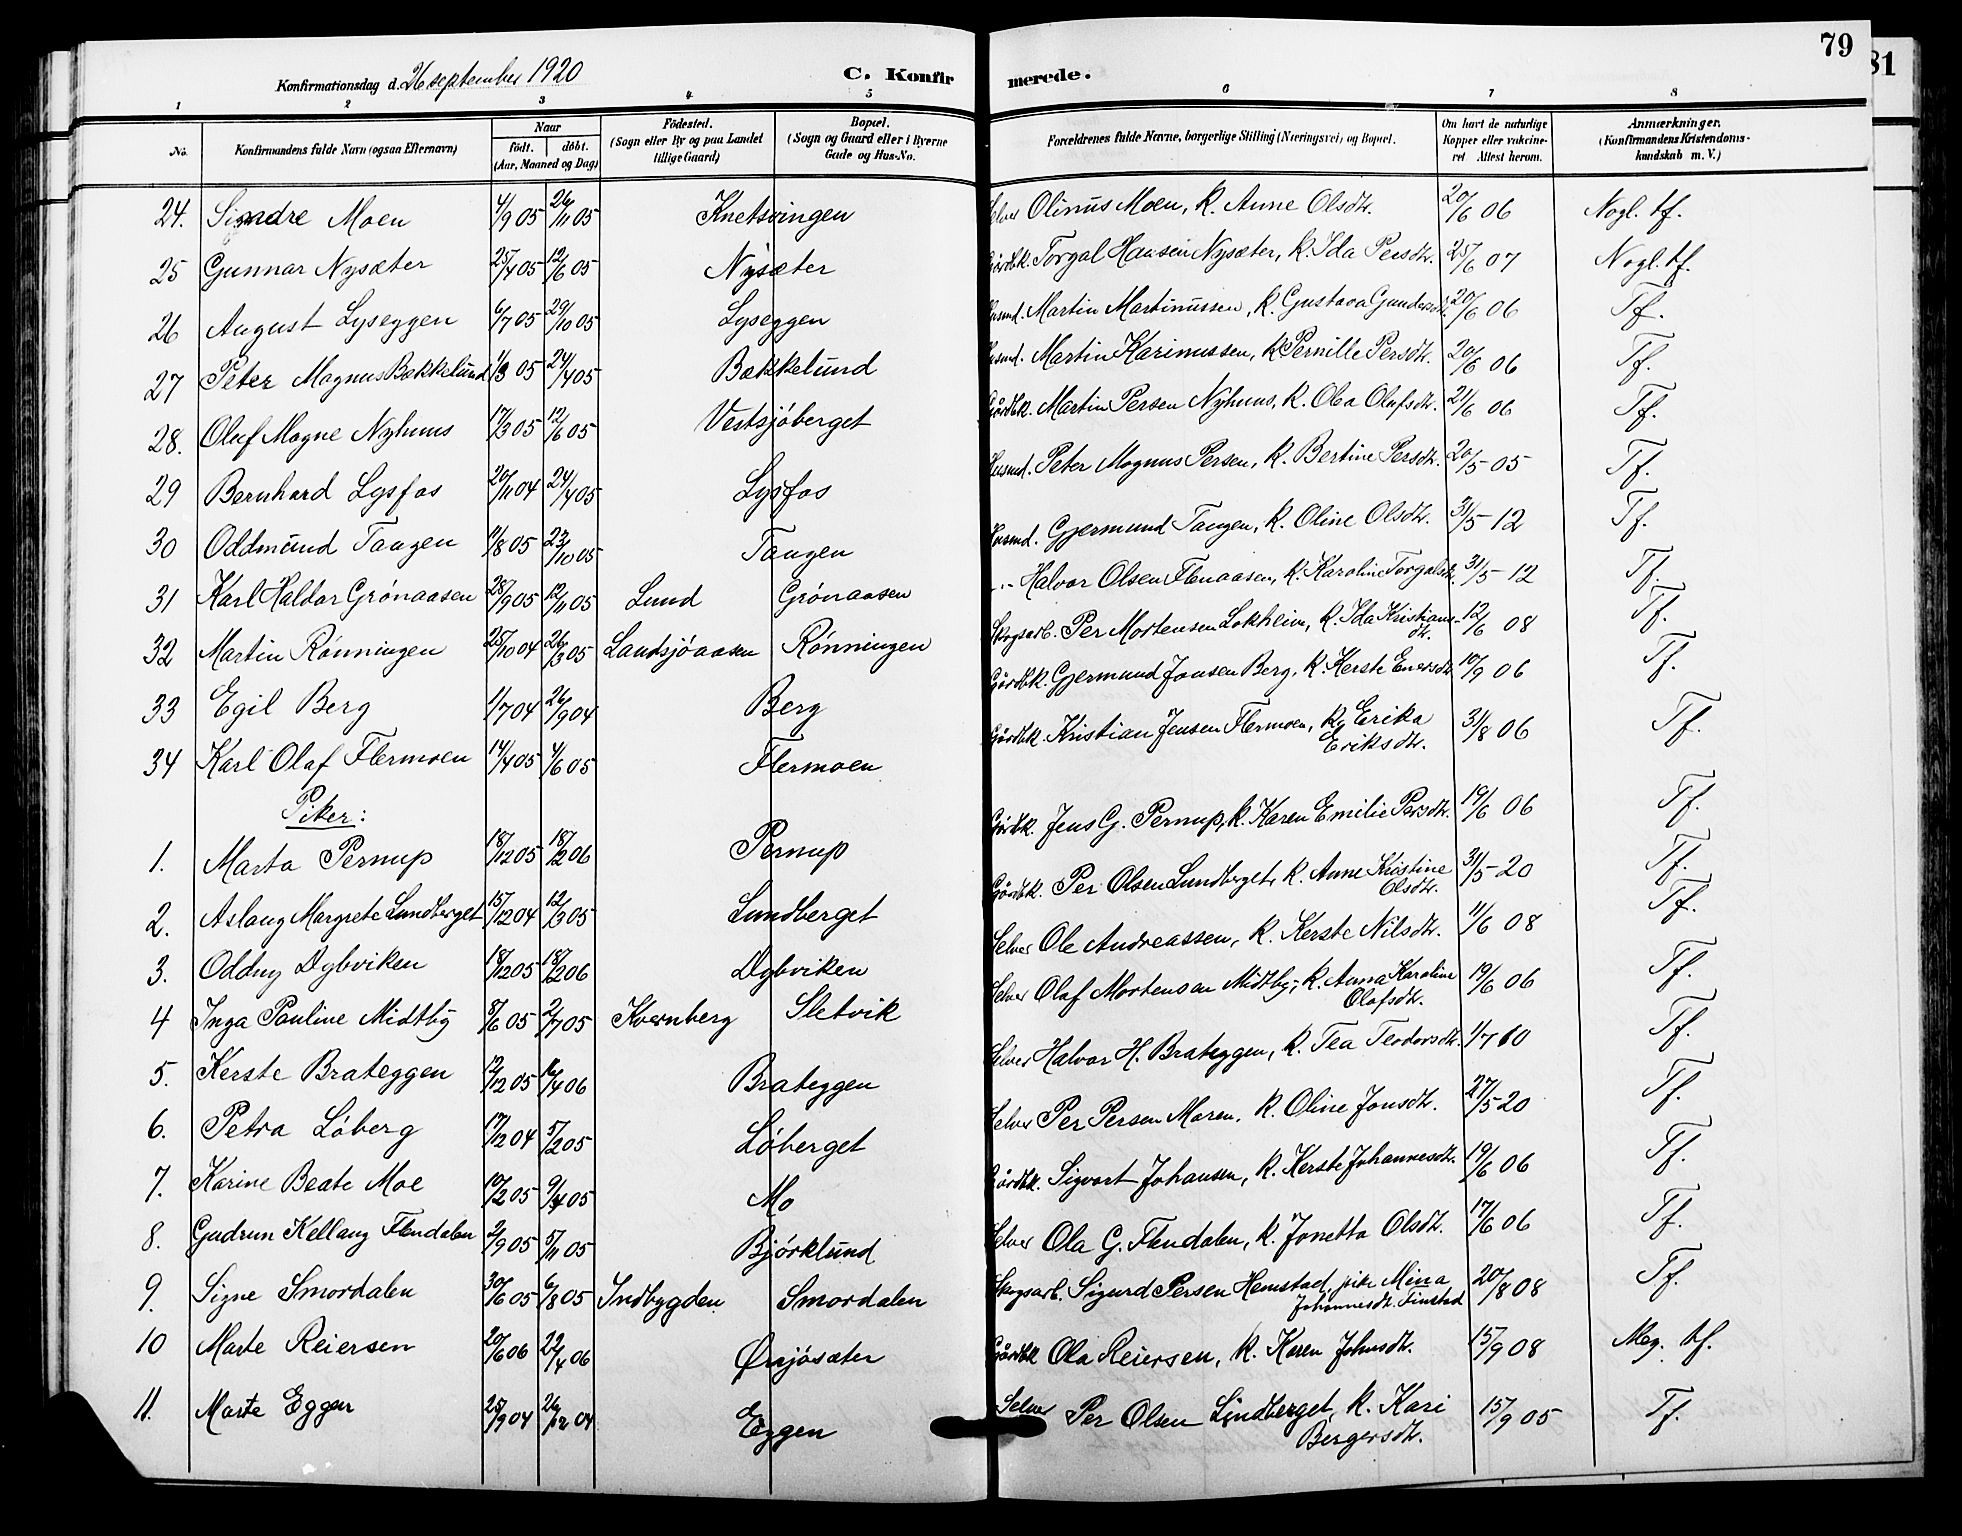 79
81
Konfirmationsdag d. 26 september 1920 C. Konfir merede.
1 2 3 4 5 6 7 8
No. Konfirmandens fulde Navn (ogsaa Efternavn) Naar født. døbt. (Aar, Maaned og Dag) Fødested. (Sogn eller By og paa Landet tillige Gaard) Bopæl. (Sogn og Gaard eller i Byerne Gade og Hus-No. Forældrenes fulde Navne, borgerlige Stilling (Næringsvei) og Bopæl. Om havt de naturlige Kopper eller vakcineret. Attest herom. Anmærkninger. (Konfirmandens Kristendomskundskab m. V.)
24. Sindre Moen 4/9 05 26/11 05 Knetsvingen Selver Olinus Moen, k. Anne Olsdtr. 20/6 06 Nogl. tf.
25 Gunnar Nysæter 25/4 05 12/6 05 Nysæter Gårdbk. Torgal Hansen Nysæter, k. Ida Persdtr. 25/6 07 Nogl. tf.
26 August Lyseggen 6/7 05 29/10 05 Lyseggen Husmd. Martin Martinussen, k. Gustava Gundersdtr. 20/6 06 Tf.
27 Peter Magnus Bakkelund 1/3 05 24/4 05 Bakkelund Husmd. Martin Karinussen, k. Pernille Persdtr. 20/6 06 Tf.
28. Oluf Magne Nyhuus 17/3 05 12/6 05 Vestsjøberget Gårdbk. Martin Persen Nyhuus, k. Olea Olafsdtr. 21/6 06 Tf.
29 Bernhard Lysfos 20/11 04 24/4 05 Lysfos Husmd. Peter Magnus Persen, k. Bertine Persdtr. 20/5 05 Tf.
30 Oddmund Tangen 11/8 05 23/10 05 Tangen Husmd. Gjermund Tangen, k. Oline Olsdtr. 31/5 12 Tf.
31 Karl Haldor Grønaasen 28/9 05 12/11 05 Lund Grønaasen -"- Halvor Olsen Flenaasen, k. Karoline Torgalsdtr. 31/5 12 Tf.
32 Martin Rønningen 25/10 04 26/3 05 Landsjøaasen Rønningen Skogsarb. Per Mortensen Lokheim, k. Ida Kristiansdtr. 12/6 08 Tf.
33 Egil Berg 1/7 04 26/9 04 Berg Gårdbk. Gjermund Jonsen Berg, k. Kerste Enersdtr. 10/9 06 Tf.
34 Karl Olaf Flermoen 14/4 05 4/6 05 Flermoen Gårdbk. Kristian Jensen Flermoen, k. Erika Eriksdtr. 31/8 06 Tf.
Piker:
1. Marta Pernup 18/12 05 18/2 06 Pernup Gårdbk. Jens G. Pernup, k. Karen Emilie Persdtr. 19/6 06 Tf.
2. Aslaug Margrete Lundberget 15/12 04 12/3 05 Lundberget Gårdbk. Per Olsen Lundberget, k. Anne Kristine Olsdtr. 31/5 20 Tf.
3. Oddny Dybviken 18/12 05 18/2 06 Dybviken Selver Ole Andreassen, k. Kerste Nilsdtr. 11/6 08 Tf.
4 Inga Pauline Midtby 8/6 05 2/7 05 Kvernberg Sletvik Selver Olaf Mortensen Midtby, k. Anna Karoline Olafsdtr. 19/6 06 Tf.
5. Kerste Brateggen 12/12 05 16/4 06 Brateggen Selver Halvor H. Brateggen, k. Tea Teodorsdtr. 1/7 10 Tf.
6. Petra Løberg 17/12 04 5/2 05 Løberget Selver Per Persen Moren, k. Oline Jonsdtr. 27/5 20 Tf.
7. Karine Beate Moe 10/2 05 9/4 05 Mo Gårdbk. Sigvart Johansen, k. Kerste Johannesdtr. 19/6 06 Tf.
8. Gudrun Kellaug Flendalen 2/9 05 5/11 05 Bjørklund Selver Ola G. Flendalen, k. Jonetta Olsdtr. 17/6 06 Tf.
9. Signe Smordalen 30/6 05 6/8 05 Indbygden Smordalen Skogsarb. Sigurd Persen Hemstad, pike Mina Johannesdtr. Finstad 20/8 08 Tf.
10 Marte Reiersen 20/6 06 22/4 06 Ørsjøsæter Gårdbk Ola Reiersen, k. Karen Johnsdtr. 15/9 08 Meg. tf.
11. Marte Eggen 25/9 04 26/12 04 Eggen Selver Per Olsen Lindberget, k. Kari Bergersdtr. 15/9 05 Tf.